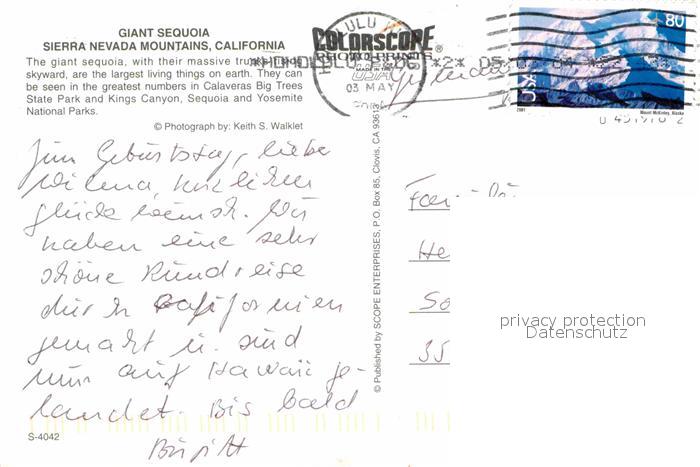 GIANT SEQUOIA
SIERRA NEVADA MOUNTAINS, CALIFORNIA
The giant sequoia, with their massive trunks
skyward, are the largest living things on earth. They can
be seen in the greatest numbers in Calaveras Big Trees
State Park and Kings Canyon, Sequoia and Yosemite
National Parks.
© Photograph by: Keith S. Walklet
Zum Geburtstag, liebe
Wilma, herzlichen
Glückwunsch. Wir
haben eine sehr
schöne Rundreise
durch Californien
gemacht u. sind
nun auf Hawaii ge-
landet. Bis bald
Birgitt
S-4042
© Published by SCOPE ENTERPRISES, P.O. Box 85, Clovis, CA 93613
COLORSCOPE®
HONOLULU
USA
03 MAY
80
USA
2001
Mount McKinley, Alaska
He
So
35
privacy protection
Datenschutz